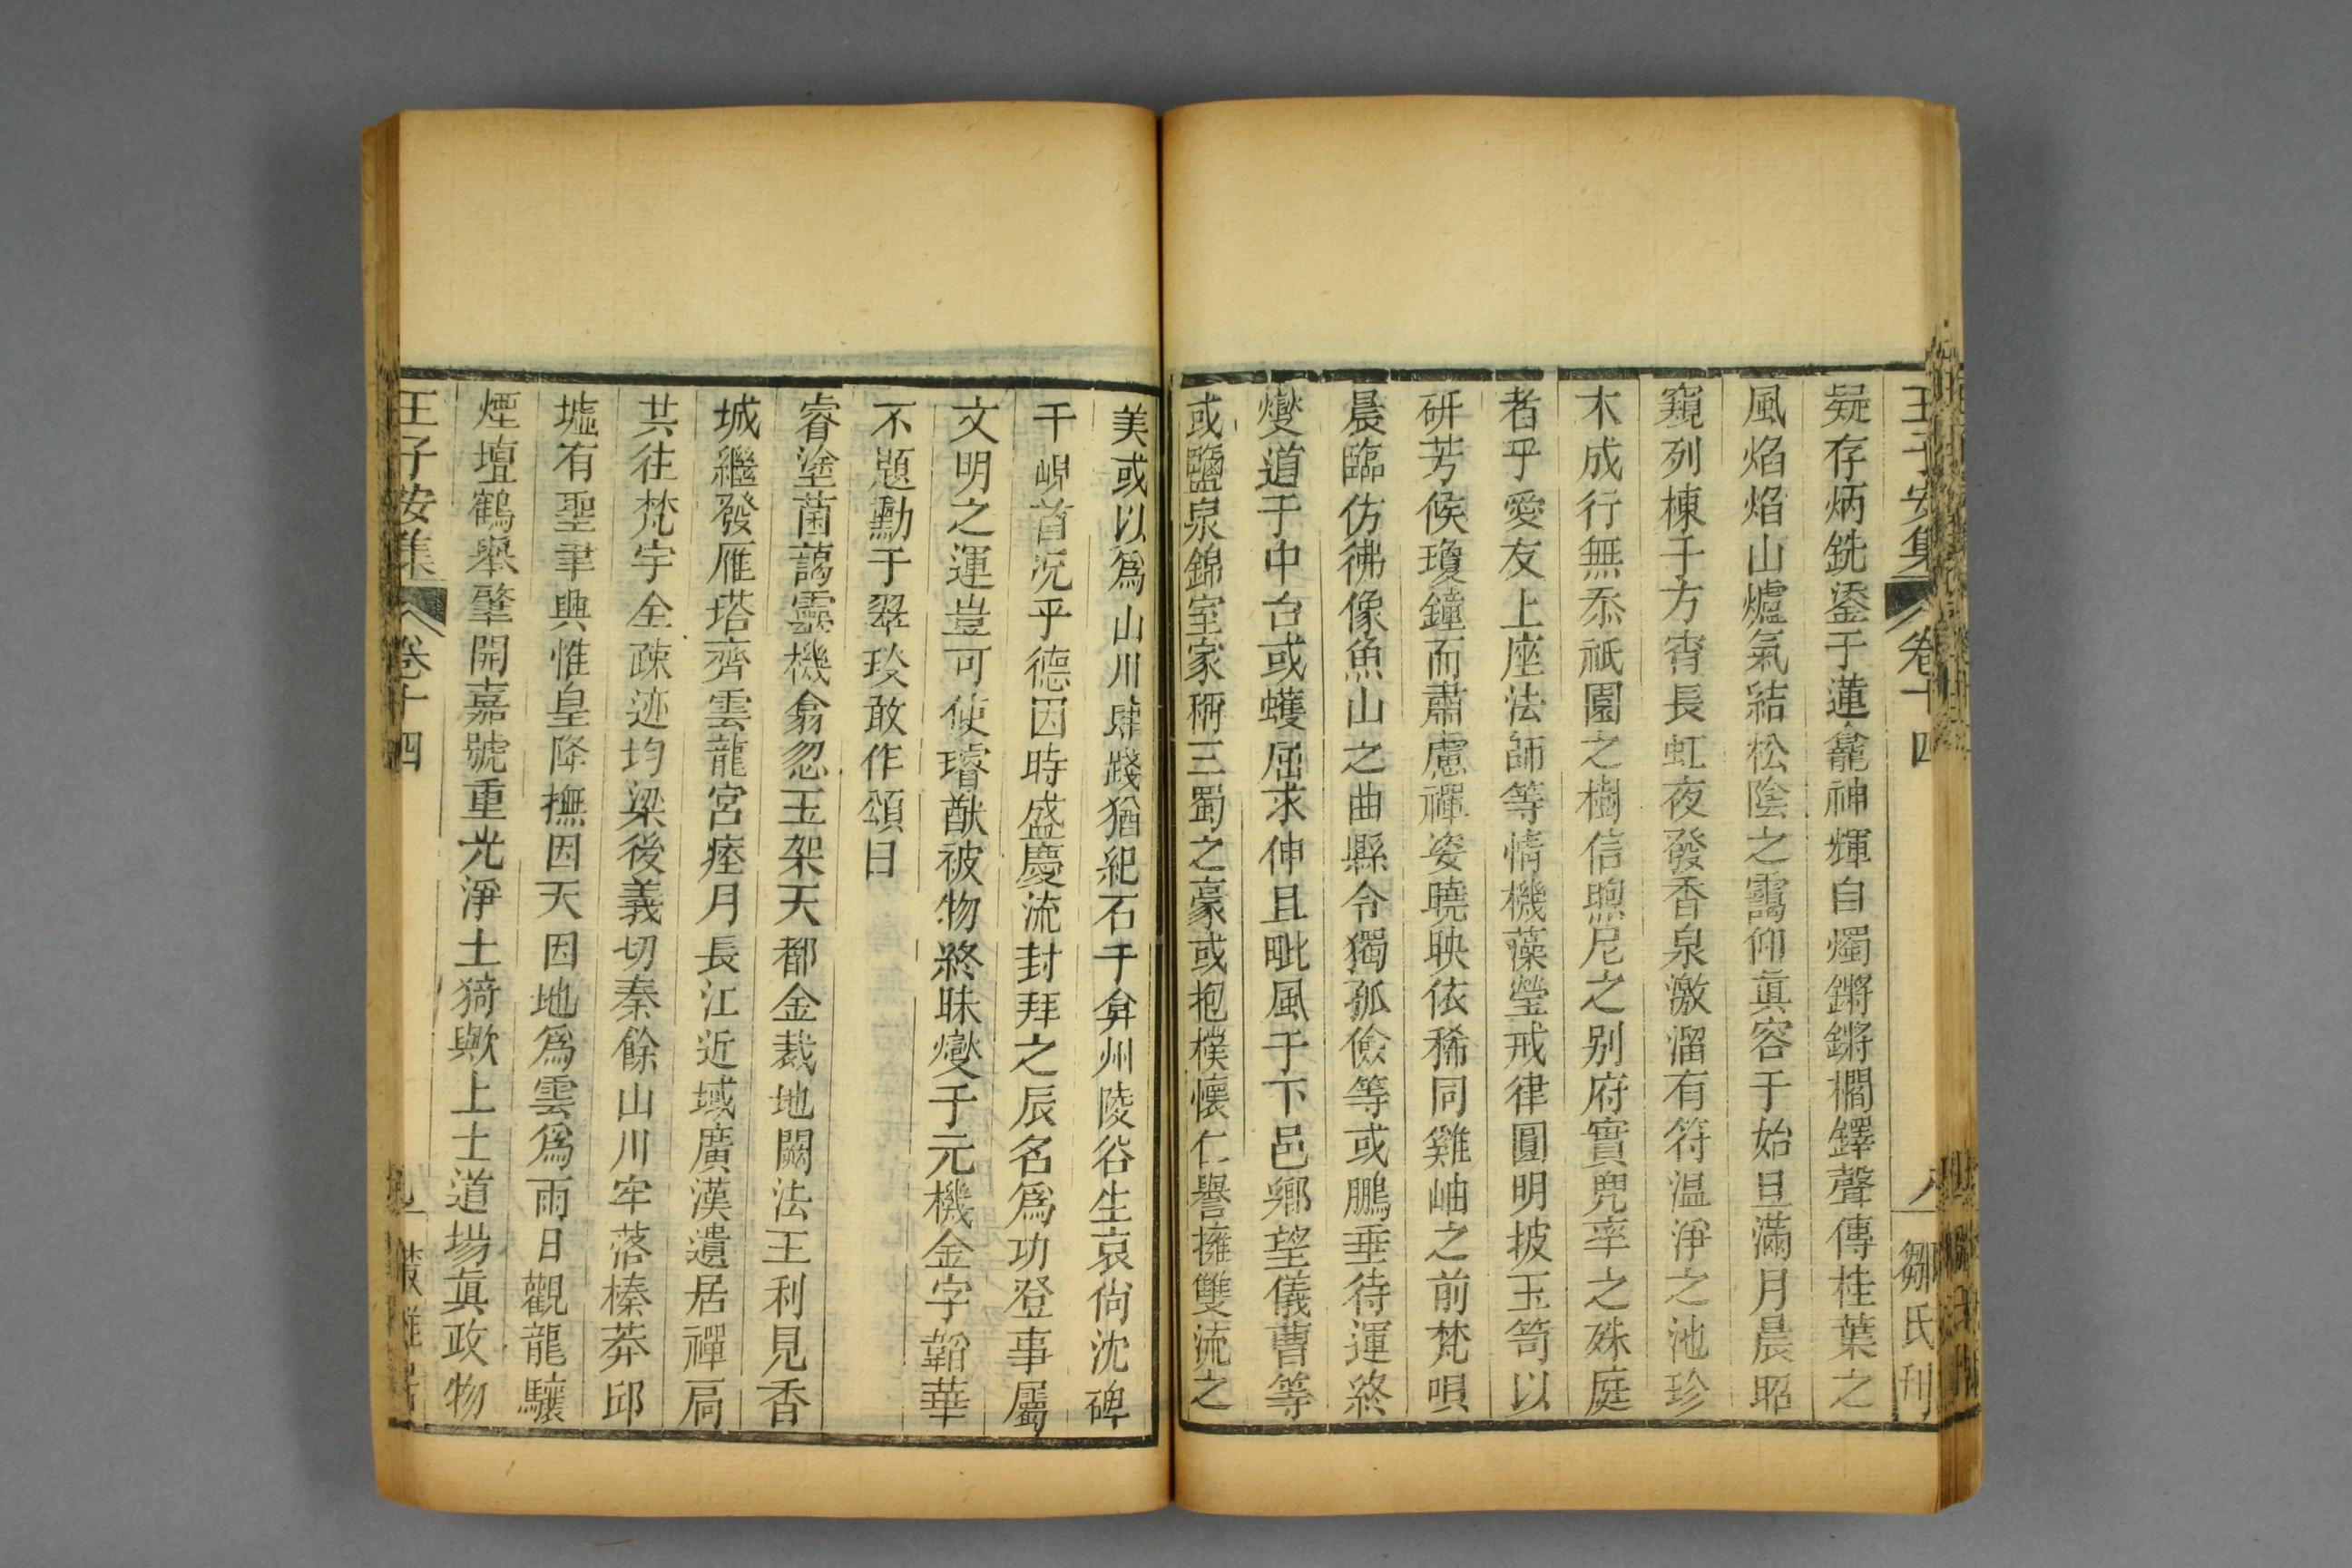 王子安集 卷十四 八 鄒氏刊
疑存炳銑鋈于蓮龕神輝自燭鏘鏘櫊鐸聲傳桂葉之
風焰焰山爐氣結松陰之靄仰眞容于始旦滿月晨昭
窺列棟于方宵長虹夜發香泉激溜有符温淨之池珍
木成行無忝祇園之樹信煦尼之别府實兜率之殊庭
者乎愛友上座法師等情機藻瑩戒律圓明披玉笥以
研芳候瓊鐘而肅慮禪姿曉映依稀同雞岫之前梵唄
晨臨仿彿像魚山之曲縣令獨孤儉等或鵬垂待運終
燮道于中台或蠖屈求伸且毗風于下邑鄉望儀曹等
或鹽泉錦室家稱三蜀之豪或抱樸懷仁譽擁雙流之
美或以爲山川肆踐猶紀石于弇州陵谷生哀尚沈碑
于峴首況乎德因時盛慶流封拜之辰名爲功登事屬
文明之運豈可使璿猷被物終昧燮于元機金字韜華
不題勳于翠琰敢作頌曰
睿塗菌藹靈機翕忽玉架天都金裁地闕法王利見香
城繼發雁塔齊雲龍宮瘞月長江近域廣漢遺居禪扃
共往梵宇全疎迹均梁後義切秦餘山川牢落榛莽邱
墟有聖聿興惟皇降撫因天因地爲雲爲雨日觀龍驤
煙壇鶴舉肇開嘉號重光淨土猗歟上士道場眞政物
王子安集 卷十四 九 叢雅居